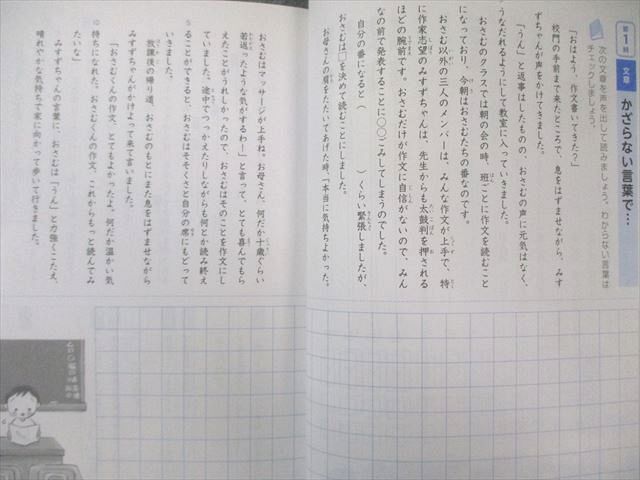 第1回
文章
かざらない言葉で…
次の文章を声を出して読みましょう。わからない言葉は
チェックしましょう。
「おはよう、作文書いてきた？」
校門の手前まで来たところで、息をはずませながら、みす
ずちゃんが声をかけてきました。
「うん」と返事はしたものの、おさむの声に元気はなく、
うなだれるようにして教室に入っていきました。
おさむのクラスでは朝の会の時、班ごとに作文を読むこと
になっており、今朝はおさむたちの番なのです。
おさむ以外の三人のメンバーは、みんな作文が上手で、特
に作家志望のみすずちゃんは、先生からも太鼓判を押される
ほどの腕前です。おさむだけが作文に自信がないので、みん
なの前で発表することに〇〇ごみしてしまうのでした。
自分の番になると（　　　）くらい緊張しましたが、
おさむは□を決めて読むことにしました。
お母さんの肩をたたいてあげた時、「本当に気持ちよかった。
おさむはマッサージが上手ね。お母さん、何だか十歳ぐらい
若返ったような気がするわ！」と言って、とても喜んでもら
えたことがうれしかったので、おさむはそのことを作文にし
ていました。途中でつっかえたりしながらも何とか読み終え
ることができると、おさむはそそくさと自分の席にもどって
5
いきました。
放課後の帰り道、おさむのもとにまた息をはずませながら
みすずちゃんがかけよって来て言いました。
「おさむくんの作文、とてもよかったよ。何だか温かい気
持ちになれた。おさむくんの作文、これからもっと読んでみ
10
たいな」
みすずちゃんの言葉に、おさむは「うん」と力強くこたえ、
晴れやかな気持ちで家に向かって歩いて行きました。